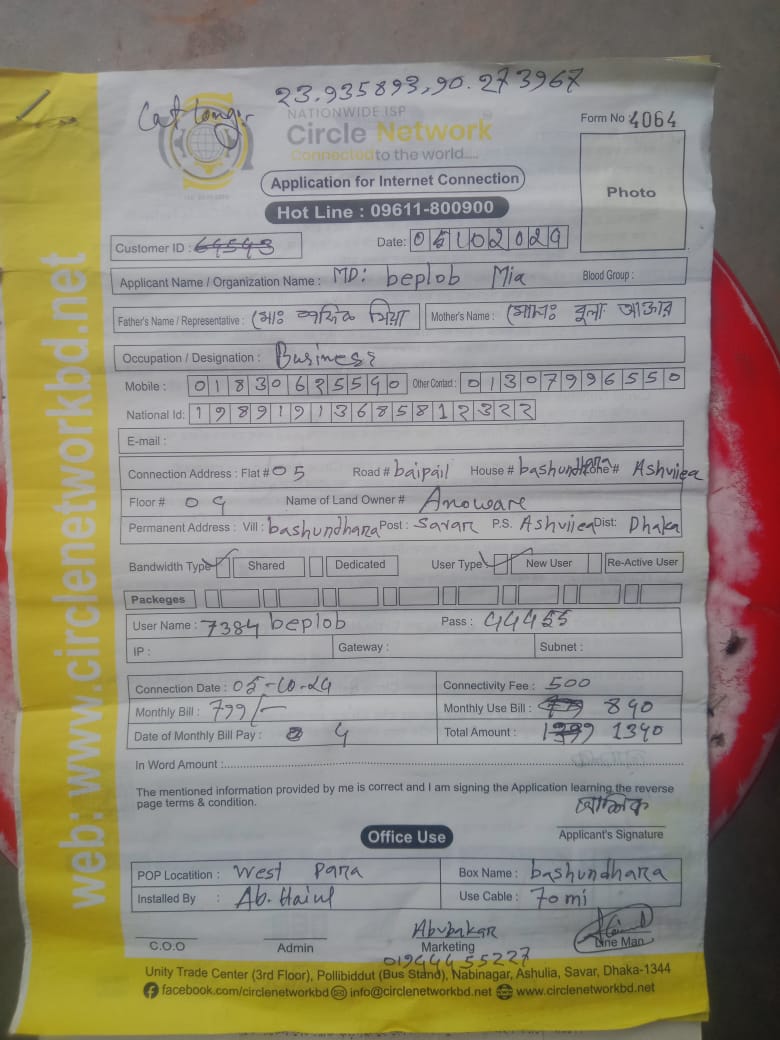 23.935893,90.273967
NATIONWIDE ISP
Circle Network
Connected to the world....
Form No 4064
Photo
Application for Internet Connection
Hot Line : 09611-800900
Customer ID : 64543
Date: 05102024
Applicant Name / Organization Name : MD: beplob Mia Blood Group :
Father's Name / Representative : মোঃ মিয়া Mother's Name : মোসাঃ বুলা আক্তার
Occupation / Designation : Business
Mobile : 01830625540 Other Contact : 01307996550
National Id: 19891913685812322
E-mail :
Connection Address : Flat # 05 Road # baipail House # bashundhara Zone # Ashuliea
Floor # 04 Name of Land Owner # Anoware
Permanent Address : Vill : bashundhara Post : Savar P.S. Ashuliea Dist: Dhaka
Bandwidth Type Shared Dedicated User Type New User Re-Active User
Packeges
User Name : 7384 beplob Pass : 44455
IP : Gateway : Subnet :
Connection Date : 05-10-24 Connectivity Fee : 500
Monthly Bill : 799/- Monthly Use Bill : 840
Date of Monthly Bill Pay : 4 Total Amount : 1340
In Word Amount :
The mentioned information provided by me is correct and I am signing the Application learning the reverse
page terms & condition.
Applicant's Signature
Office Use
POP Locatition : West Para Box Name : bashundhara
Installed By : Ab. Hairul Use Cable : 70 mi
Abubakar
C.O.O Admin Marketing Line Man
01944455227
Unity Trade Center (3rd Floor), Pollibiddut (Bus Stand), Nabinagar, Ashulia, Savar, Dhaka-1344
facebook.com/circlenetworkbd info@circlenetworkbd.net www.circlenetworkbd.net
web: www.circlenetworkbd.net